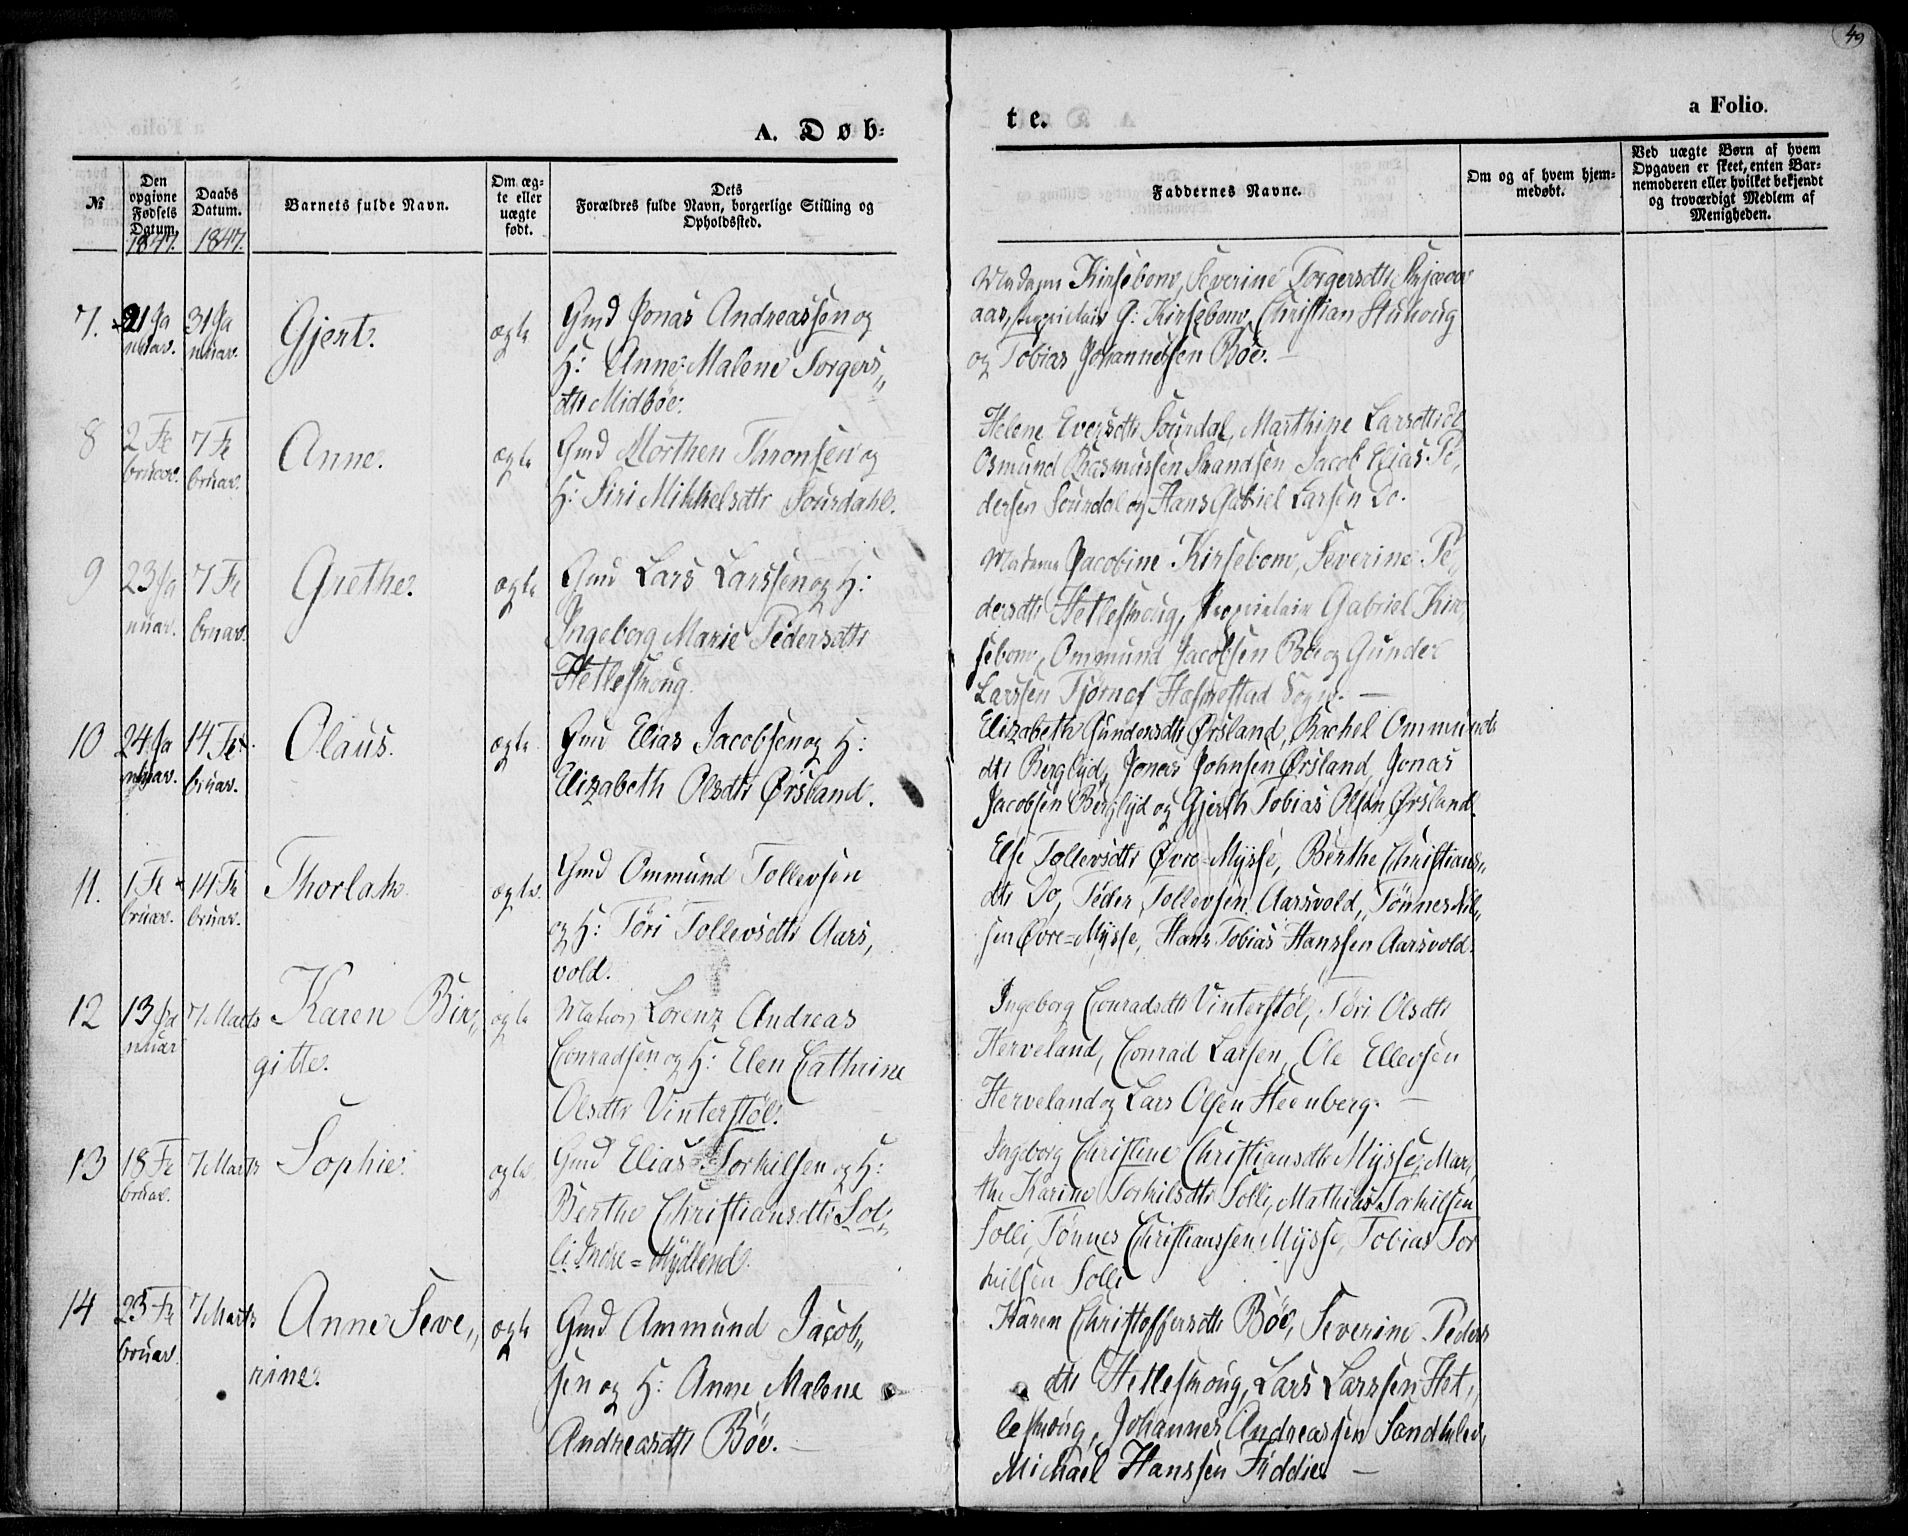 49
A. Døb-
te.
a Folio.
№
Den opgivne Fødsels Datum.
1847.
Daabs Datum.
1847.
Barnets fulde Navn.
Om ægte eller uægte født.
Dets
Forældres fulde Navn, borgerlige Stilling og
Opholdssted.
Faddernes Navne.
Om og af hvem hjem-
medøbt.
Ved uægte Børn af hvem
Opgaven er skeet, enten Bar-
nemoderen eller hvilket bekjendt
og troværdigt Medlem af
Menigheden.
7. 21 Ja 31 Ja Gjert. ægte Gmd Jonas Andreassen og
nuar. nuar. H: Anne Malene Torgers„
dtr Midbøe.
Madame Kirsebom, Severine Torgersdtr
aas, G: Kirsebom, Christian
og Tobias Johannessen Bøe. —
8 2 Fe 7 Fe Anne. ægte Gmd Morthen Thronsen og
bruar. bruar. H: Siri Mikkelsdtr Sourdahl.
Helene Eversdtr Sourdal, Marthine Larsdtr do
Osmund Rasmussen Strandsen Jacob Elias Pe„
dersen Sourdal og Hans Gabriel Larsen Do.
9 23 Ja 7 Fe Grethe. ægte Gmd Lars Larssen og H:
nuar. bruar. Ingeborg Marie Pedersdtr
Hetleskoug.
Madame Jacobine Kirsebom, Severine Pe„
dersdtr Hetleskoug, Proprietair Gabriel Kir„
sebom, Ommund Jacobsen Bøe og Gunder
Larssen Tjørn af Sogn. —
10 24 Ja 14 Fe Olaus. ægte Gmd Elias Jacobsen og H:
nuar. bruar. Elizabeth Olsdtr Ørsland.
Elizabeth Gundersdtr Ørsland, Rachel Ommunds
dtr Berglyd, Jonas Johnsen Ørsland, Jonas
Jacobsen Berglyd og Gjerth Tobias Olsen Ørsland.
11. 1 Fe 14 Fe Thorlak. ægte. Gmd Ommund Tollevsen
bruar. bruar. og H: Tøri Tollevsdtr Aars„
vold.
Else Tollevsdtr Øvre=Mysse, Berthe Christians„
dtr Do, Peder Tollevsen Aarsvold, Tønnes Nil„
sen Øvre=Mysse, Hans Tobias Hanssen Aarsvold.
12 13 Ja 7 Marts Karen Bir„ ægte Lorenz Andreas
nuar gitte. Conradsen og H: Elen Cathrine
Olsdtr Vinterstøl.
Ingeborg Conradsdtr Vinterstøl, Tøri Olsdtr
Herveland, Conrad Larsen, Ole Ellevsen
Herveland og Lars Olsen Steenberg. —
13 18 Fe 7 Marts Sophie. ægte Gmd Elias Torkilsen og H:
bruar. Berthe Christiansdtr Sol„
li Indre=Mydland.
Ingeborg Christine Christiansdtr Mysse, Mar„
the Karine Torkilsdtr Solli, Mathias Torkilsen
Solli, Tønnes Christianssen Mysse, Tobias Tor
kilsen Solli
14 23 Fe 7 Marts Anne Seve„ ægte Gmd Ammund Jacob„
bruar rine. sen og H: Anne Malene
Andreasdtr Bøe. —
Karen Christoffersdtr Bøe, Severine Peders
dtr Hetleskoug, Lars Larssen Het„
leskoug, Johannes Andreassen Sandkleiv,
Michael Hanssen Fiddie. —